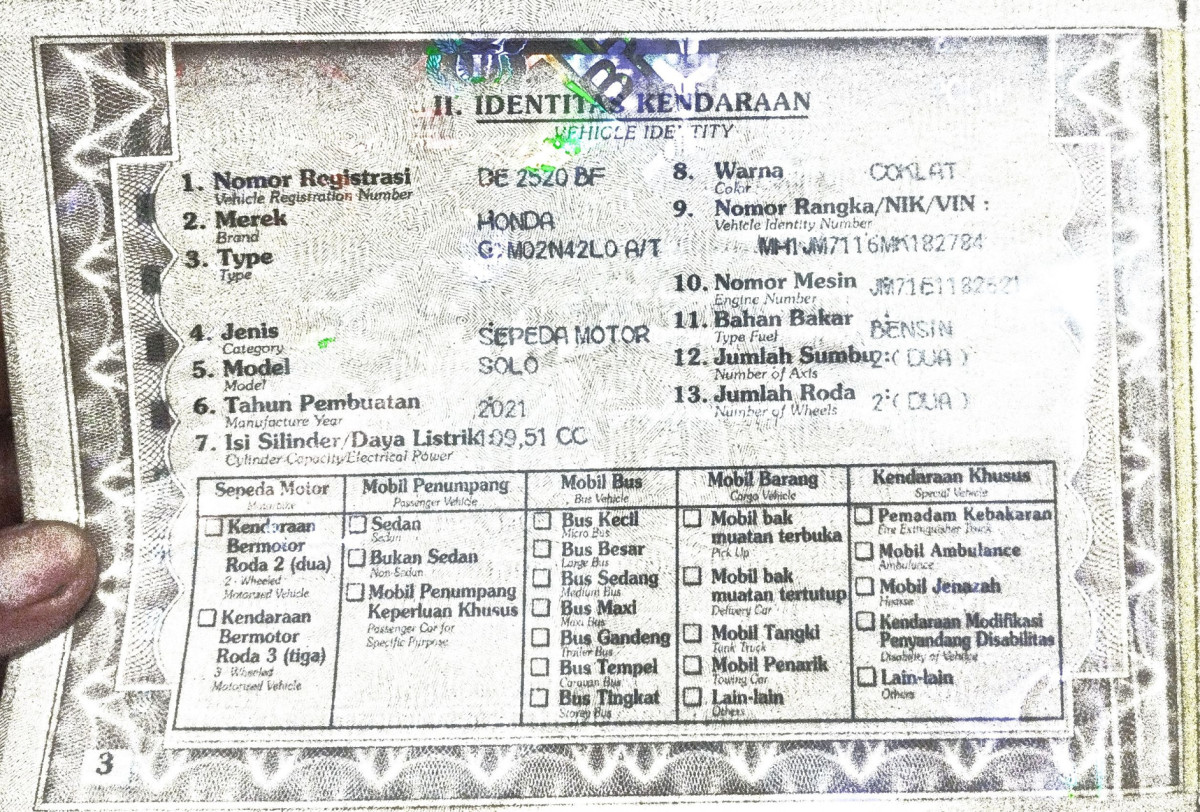 II. IDENTITAS KENDARAAN
VEHICLE IDENTITY
1. Nomor Registrasi DE 2520 BF
Vehicle Registration Number
2. Merek HONDA
Brand
3. Type M02N42L0 A/T
Type
4. Jenis SEPEDA MOTOR
Category
5. Model SOLO
Model
6. Tahun Pembuatan 2021
Manufacture Year
7. Isi Silinder/Daya Listrik 109,51 CC
Cylinder Capacity/Electrical Power
8. Warna COKLAT
Color
9. Nomor Rangka/NIK/VIN :
Vehicle Identity Number
MH1JM7116MK182784
10. Nomor Mesin
Engine Number
11. Bahan Bakar BENSIN
Type Fuel
12. Jumlah Sumbu: 2 ( DUA )
Number of Axis
13. Jumlah Roda 2 ( DUA )
Number of Wheels
Sepeda Motor
Motorbike
Kendaraan
Bermotor
Roda 2 (dua)
2 - Wheeled
Motorized Vehicle
Kendaraan
Bermotor
Roda 3 (tiga)
3 Wheeled
Motorized Vehicle
Mobil Penumpang
Passenger Vehicle
Sedan
Sedan
Bukan Sedan
Non-Sedan
Mobil Penumpang
Keperluan Khusus
Passenger Car for
Specific Purpose
Mobil Bus
Bus Vehicle
Bus Kecil
Micro Bus
Bus Besar
Large Bus
Bus Sedang
Medium Bus
Bus Maxi
Maxi Bus
Bus Gandeng
Trailer Bus
Bus Tempel
Caravan Bus
Bus Tingkat
Storey Bus
Mobil Barang
Cargo Vehicle
Mobil bak
muatan terbuka
Pick Up
Mobil bak
muatan tertutup
Delivery Car
Mobil Tangki
Tank Truck
Mobil Penarik
Towing Car
Lain-lain
Others
Kendaraan Khusus
Special Vehicle
Pemadam Kebakaran
Fire Extinguisher Truck
Mobil Ambulance
Ambulance
Mobil Jenazah
Hearse
Kendaraan Modifikasi
Penyandang Disabilitas
Disability of Vehicle
Lain-lain
Others
3